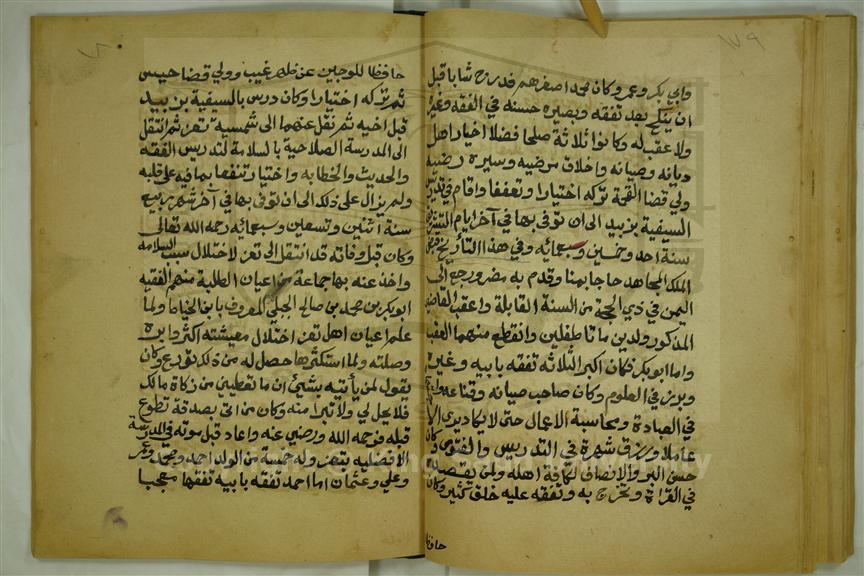 ١٧٩
وابي بكر وعمر وكان محمد اصغرهم فدرج شابا قبل
ان ينكح بعد تفقه وبصيره حسنه في الفقه وغيره
ولا عقب له وكانوا ثلاثة صلحا فضلا اخيار اهل
ديانه وصيانه واخلاق مرضيه وسيره رضيه
ولي قضا القحمة تركه اختيارا وتعففا واقام في تدريس
السيفية بزبيد الى ان توفى بها في آخر ايام التشريق
سنة احد وخمسين وسبعمائه وفي هذا التاريخ
الملك المجاهد حاجا بمنا وقدم به مصر ورجع الى
اليمن في ذي الحجة من السنة القابلة واعقب القاضي
المذكور ولدين ماتا طفلين وانقطع منهما العقب
واما ابو بكر فكان اكبر الثلاثه تفقه بابيه وغيره
وبرز في العلوم وكان صاحب صيانه وقناعه
في العبادة ومحاسبة الاعمال حتى لا يكاد يرى الا
عاملا ورزق شهرة في التدريس والفتوى وكان
حسن البر والانصاف لكافة اهله ولمن يقصده
في القراة وتخرج به وتفقه عليه خلق كثير وكان
حافظا
حافظا للوجهين عن ظهر غيب وولي قضا حيس
ثم تركه اختيارا وكان درس بالسيفية بزبيد
قبل اخيه ثم نقل عنهما الى شمسية تعز ثم انتقل
الى المدرسة الصلاحية بالسلامة لتدريس الفقه
والحديث والخطابه واختيار تنفعها بما فيه على قلبه
ولم يزال على ذلك الى ان توفى بها في آخر شهر ربيع
سنة اثنين وتسعين وسبعمائه رحمه الله تعالى
وكان قبل وفاته قد انتقل الى تعز لاختلال سبب السلامه
واخذ عنه بها جماعة من اعيان الطلبة منهم الفقيه
ابو بكر بن محمد بن صالح الجبلي المعروف بابن الخياط ولما
علم اعيان اهل تعز اختلال معيشته اكثروا بره
وصلته ولما استكثرها حصل له من ذلك تورع وكان
يقول لمن يأتيه بشيئ ان ما تعطين من زكاة مالك
فلا يحل لي ولا تبرا منه وكان من اتى بصدقة تطوع
قبله فرحمه الله ورضي عنه واعاد قبل موته في المدرسة
الافضليه بتعز وله خمسة من الولد احمد ومحمد وعمر
وعلي وعثمان اما احمد تفقه بابيه تفقها معجبا